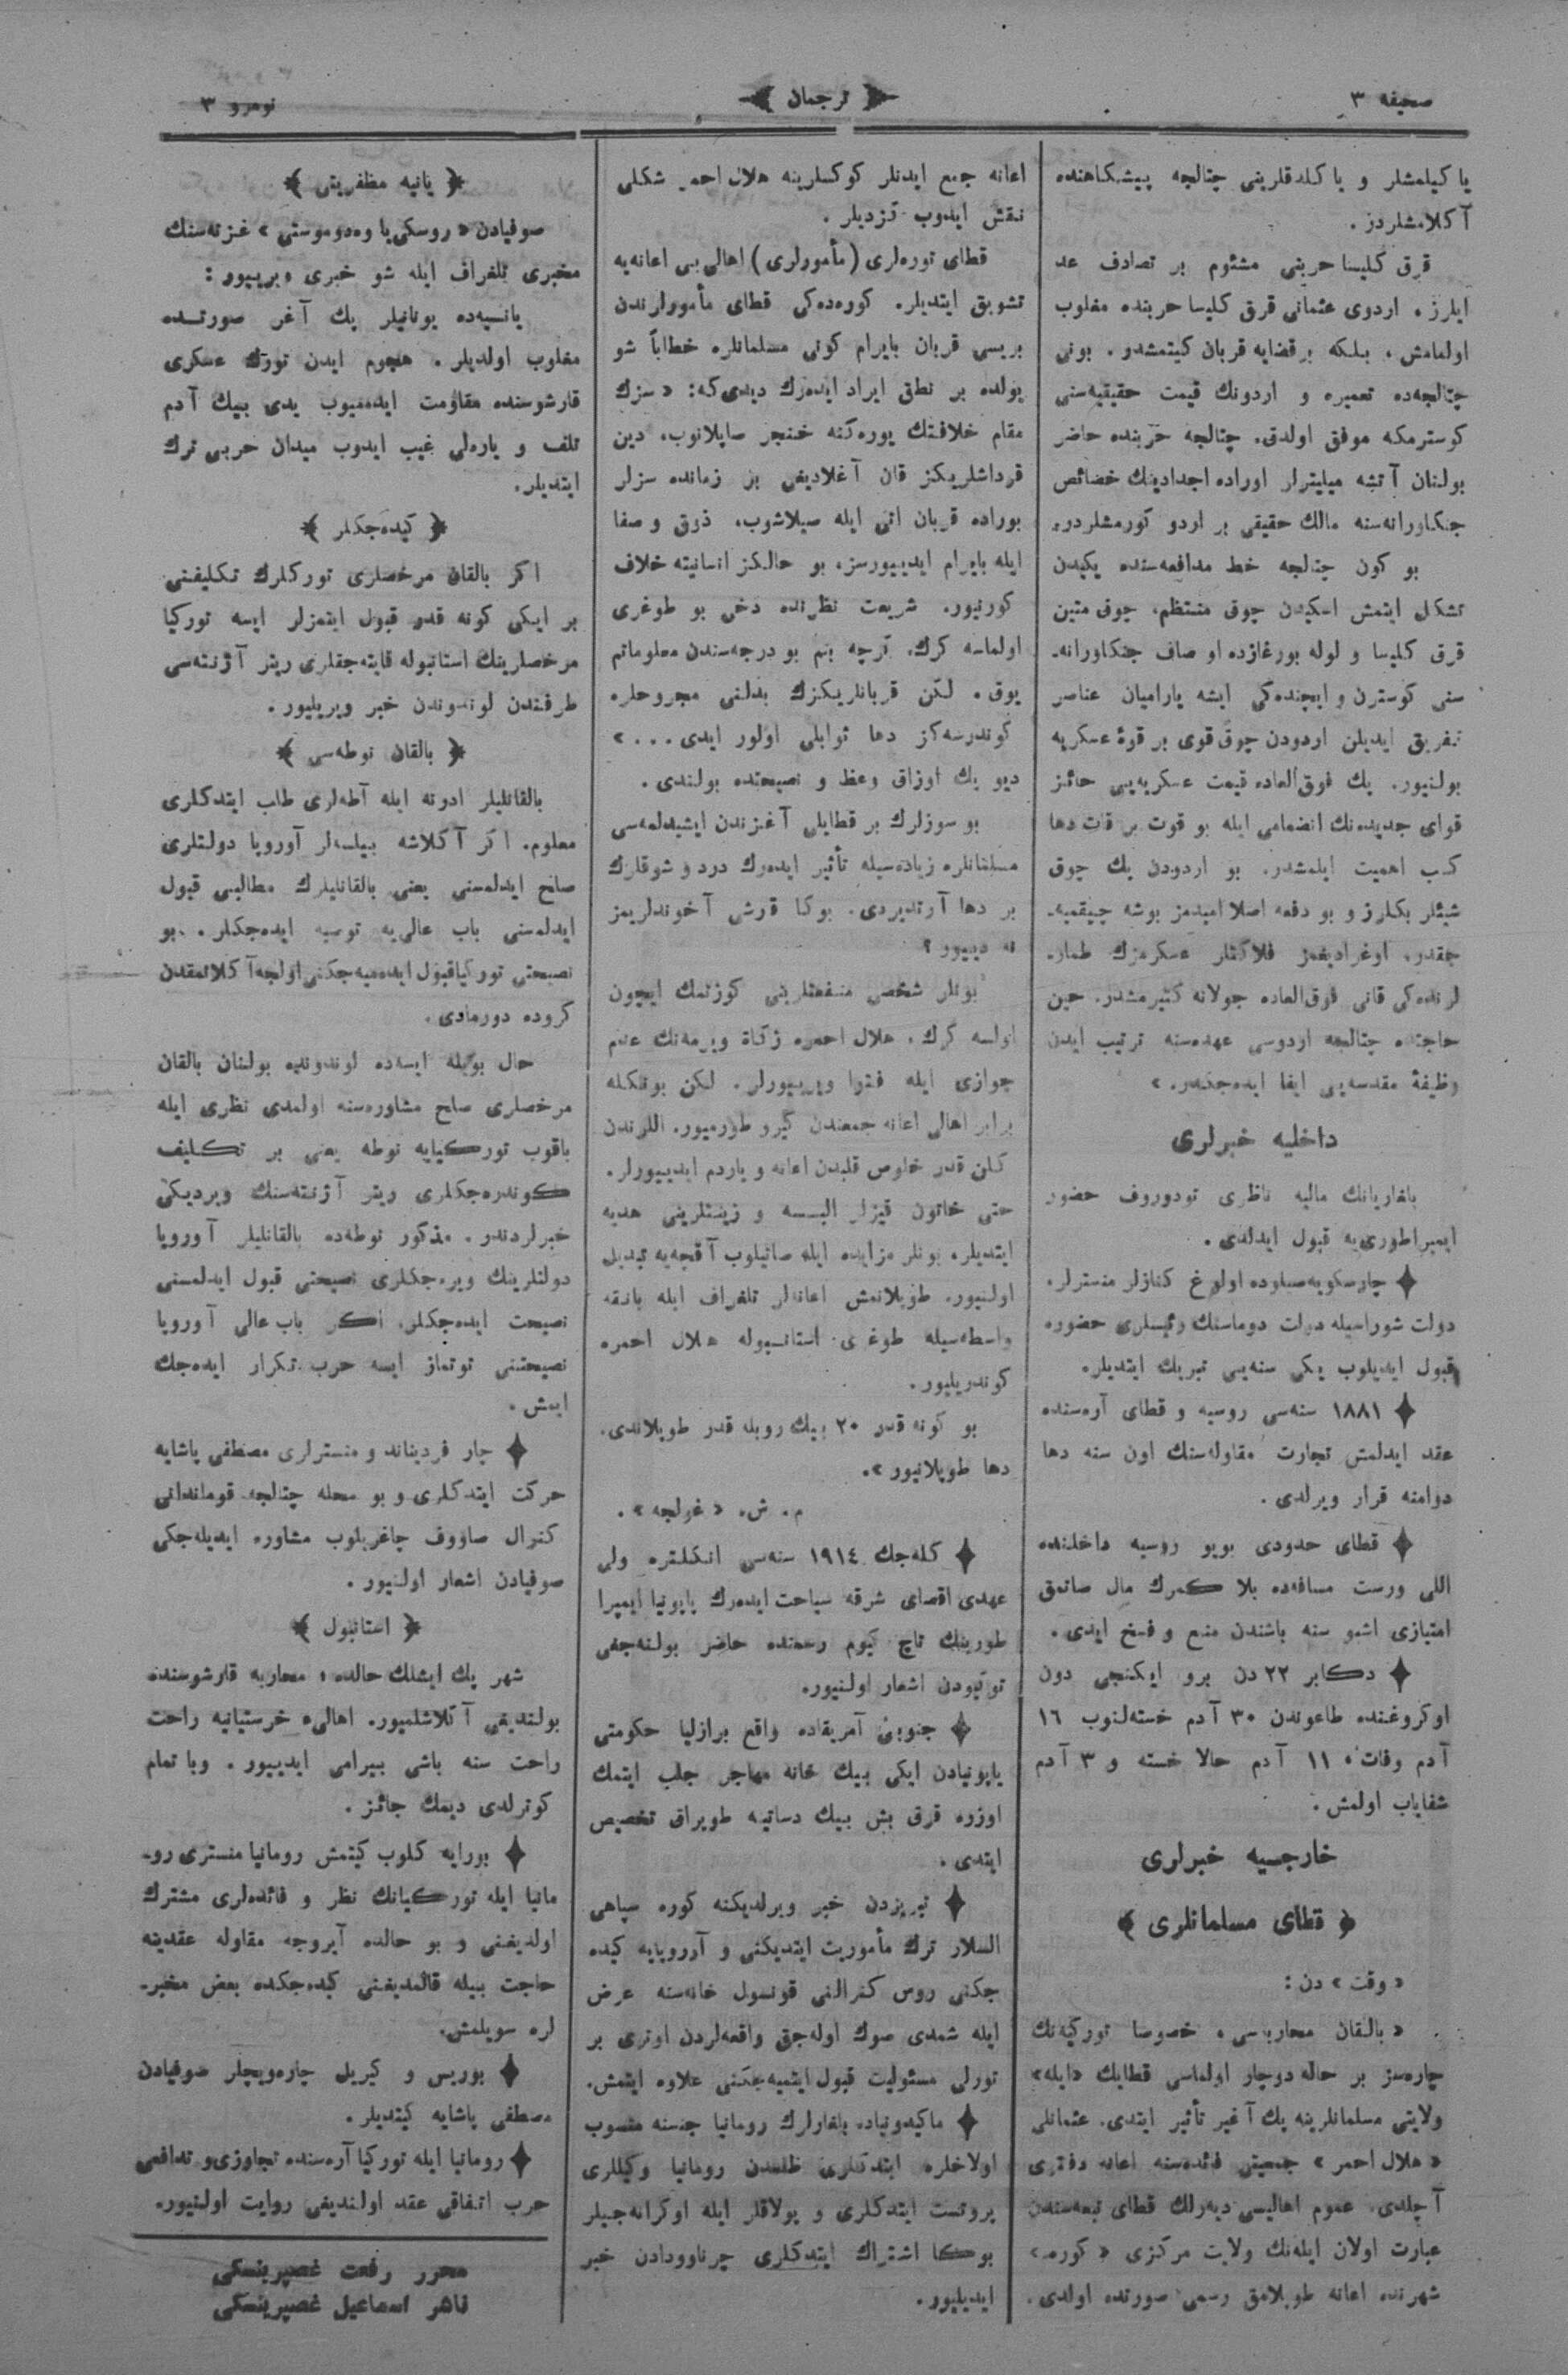 صحیفه ٣
ترجمان
نومرو ٣
یا کیلمشلر و یا کلدقلرینی چتالجه پیشکاهنده
آکلامشلردز .
قرق کلیسا حربنی مشئوم بر تصادف عد
ایلرز . اردوی عثمانی قرق کلیسا حربنده مغلوب
اولمامش ، بلکه بر قضایه قربان کیتمشدر . بونی
چتالجه‌ده تعمیره و اردونك قیمت حقیقیه‌سنی
کوسترمکه موفق اولدق. چتالجه حربنده حاضر
بولنان آتشه میلیترلر اوراده اجدادینك خصائص
جنکاورانه‌سنه مالك حقیقی بر اردو کورمشلردر.
بو کون چتالجه خط مدافعه‌سنده یکیدن
تشکل ایتمش اسکیدن چوق منتظم، چوق متین
قرق کلیسا و لوله بورغازده اوصاف جنکاورانه‌ـ
سنی کوسترن و ایچنده‌کی ایشه یارامیان عناصر
تفریق ایدیلن اردودن چوق قوی بر قوۀ عسکریه
بولنیور. یك فوق‌العاده قیمت عسکریه‌یی حائز
قوای جدیده‌نك انضمامی ایله بو قوت بر قات دها
کسب اهمیت ایلمشدر. بو اردودن یك چوق
شیئلر بکلرز و بو دفعه اصلا امیدمز بوشه چیقمیه‌ـ
جقدر. اوغرادیغمز فلاکتلر عسکرمزك طمارـ
لرنده‌کی قانی فوق‌العاده جولانه کتیرمشدر. حین
حاجتده چتالجه اردوسی عهده‌سنه ترتیب ایدن
وظیفۀ مقدسه‌یی ایفا ایده‌جکدر. »
داخلیه خبرلری
بلغاریانك مالیه ناظری تودوروف حضور
ایمپراطوری‌یه قبول ایدلدی .
چارسکویه‌سیلوده اولوغ کنازلر منسترلر،
دولت شوراسیله دولت دوماسنك رئیسلری حضوره
قبول ایدیلوب یکی سنه‌یی تبریك ایتدیلر.
١٨٨١ سنه‌سی روسیه و قطای آره‌سنده
عقد ایدلمش تجارت مقاوله‌سنك اون سنه دها
دوامنه قرار ویرلدی .
قطای حدودی بویو روسیه داخلنده
اللی ورست مسافه‌ده بلا کمرك مال صاتمق
امتیازی اشبو سنه باشندن منع و فسخ ایدی .
دکابر ٢٢ دن برو ایکنجی دون
اوکروغنده طاعوندن ٣٠ آدم خسته‌لنوب ١٦
آدم وفات، ١١ آدم حالا خسته و ٣ آدم
شفایاب اولمش .
خارجیه خبرلری
﴿ قطای مسلمانلری ﴾
« وقت » دن :
« بالقان محاربه‌سی ، خصوصا تورکیه‌نك
چاره‌سز بر حاله دوچار اولماسی قطایك «ایله»
ولایتی مسلمانلرینه یك آغیر تأثیر ایتدی. عثمانلی
« هلال احمر » جمعیتی فائده‌سنه اعانه دفتری
آچلدی. عموم اهالیسی دیه‌رلك قطای تبعه‌سندن
عبارت اولان ایله‌نك ولایت مرکزی « کوره »
شهرنده اعانه طوپلامق رسمی صورتده اولدی.
اعانه جمع ایدنلر کوکسلرینه هلال احمر شکلی
نقش ایدوب کزدیلر .
قطای توره‌لری (مأمورلری) اهالی‌یی اعانه‌یه
تشویق ایتدیلر. کوره‌ده‌کی قطای مأمورلرندن
بریسی قربان بایرام کونی مسلمانلره خطاباً شو
یولده بر نطق ایراد ایده‌رك دیدی‌که: « سزك
مقام خلافتك یوره‌کنه خنجر صاپلانوب، دین
قرداشلریکز قان آغلادیغی بر زمانده سزلر
بوراده قربان اتی ایله صیلاشوب، ذوق و صفا
ایله بایرام ایدییورسز، بو حالکز انسانیته خلاف
کورنیور. شریعت نظرنده دخی بو طوغری
اولماسه کرك. کرچه بنم بو درجه‌سندن معلوماتم
یوق . لکن قربانلریکزك بدلنی مجروحلره
کوندرسه‌کز دها ثوابلی اولور ایدی . . . »
دیو یك اوزاق وعظ و نصیحتده بولندی .
بو سوزلرك بر قطایلی آغزندن ایشیدلمه‌سی
مسلمانلره زیاده‌سیله تأثیر ایده‌رك درد و شوقلرك
بر دها آرتدیردی. بوکا قرشی آخوندلریمز
نه دییور ؟
بونلر شخصی منفعتلرینی کوزتمك ایچون
اولسه کرك، هلال احمره زکاة ویرمه‌نك عدم
جوازی ایله فتوا ویرییورلر . لکن بونکله
برابر اهالی اعانه جمعندن کیرو طورمیور. اللرندن
کلن قدر خلوص قلبدن اعانه و یاردم ایدییورلر.
حتی خاتون قیزلر البسه و زینتلرینی هدیه
ایتدیلر. بونلر مزایده ایله صاتیلوب آقچه‌یه تبدیل
اولنیور. طوپلانمش اعانه‌لر تلغراف ایله بانقه
واسطه‌سیله طوغری استانبوله هلال احمره
کوندریلیور.
بو کونه قدر ٢٠ بیك روبله قدر طوپلاندی.
دها طوپلانیور ».
م. ش. « غولجه » .
کله‌جك ١٩١٤ سنه‌سی انکلتره ولی
عهدی اقصای شرقه سیاحت ایده‌رك یاپونیا ایمپرا
طورینك تاج کیوم رسمنده حاضر بولنه‌جغی
توکیودن اشعار اولنیور.
جنوبی آمریقاده واقع برازلیا حکومتی
یاپونیادن ایکی بیك خانه مهاجر جلب ایتمك
اوزره قرق بش بیك دساتینه طوپراق تخصیص
ایتدی .
تبریزدن خبر ویرلدیکنه کوره سپاهی
السلار ترك مأموریت ایتدیکنی و آوروپایه کیده
جکنی روس کنرالنی قونسول خانه‌سنه عرض
ایله شمدی صوك اوله‌جق واقعه‌لردن اوتری بر
تورلی مسئولیت قبول ایتمیه‌جکنی علاوه ایتمش.
ماکیدونیاده بلغارلرك رومانیا جنسنه منسوب
اولاخلره ایتدکلری ظلمدن رومانیا وکیللری
پروتست ایتدکلری و پولاقلر ایله اوکرانه‌جیلر
بوکا اشتراك ایتدکلری چرناوودادن خبر
ایدیلیور.
﴿ یانیه مظفریتی ﴾
صوفیادن « روسکی‌یا وه‌دوموستی » غزته‌سنك
مخبری تلغراف ایله شو خبری ویرییور :
یانیه‌ده یونانیلر یك آغر صورتده
مغلوب اولدیلر . هجوم ایدن تورك عسکری
قارشوسنده مقاومت ایده‌میوب یدی بیك آدم
تلف و یاره‌لی غیب ایدوب میدان حربی ترك
ایتدیلر.
﴿ کیده‌جکلر ﴾
اکر بالقان مرخصلری تورکلرك تکلیفنی
بر ایکی کونه قدر قبول ایتمزلر ایسه تورکیا
مرخصلرینك استانبوله قایته‌جقلری ریتر آژنته‌سی
طرفندن لوندوندن خبر ویریلیور .
﴿ بالقان نوطه‌سی ﴾
بالقانلیلر ادرنه ایله آطه‌لری طلب ایتدکلری
معلوم. اکر آکلاشه بیلسه‌لر آوروپا دولتلری
صلح ایدلمسنی یعنی بالقانلیلرك مطالبی قبول
ایدلمسنی باب عالی‌یه توصیه ایده‌جکلر . بو
نصیحتی تورکیا قبول ایده‌میه‌جکنی اولجه آکلاتمقدن
کروده دورمادی.
حال بویله ایسه‌ده لوندونده بولنان بالقان
مرخصلری صلح مشاوره‌سنه اولمدی نظری ایله
باقوب تورکیایه نوطه یعنی بر تکلیف
کوندره‌جکلری ریتر آژنته‌سنك ویردیکی
خبرلردندر . مذکور نوطه‌ده بالقانلیلر آوروپا
دولتلرینك ویره‌جکلری نصیحتی قبول ایدلمسنی
نصیحت ایده‌جکلر. اکر باب عالی آوروپا
نصیحتنی توتماز ایسه حرب تکرار ایده‌جك
ایمش .
چار فردیناند و منسترلری مصطفی پاشایه
حرکت ایتدکلری و بو محله چتالجه قوماندانی
کنرال صاووف چاغریلوب مشاوره ایدیله‌جکی
صوفیادن اشعار اولنیور .
﴿ استانبول ﴾
شهر یك ایشلك حالده ، محاربه قارشوسنده
بولندیغی آکلاشلمیور. اهالیء خرستیانیه راحت
راحت سنه باشی بیرامی ایدییور . وبا تمام
کوترلدی دیمك جائز .
بورایه کلوب کیتمش رومانیا منستری روـ
مانیا ایله تورکیانك نظر و فائده‌لری مشترك
اولدیغنی و بو حالده آیروجه مقاوله عقدینه
حاجت بیله قالمدیغنی کیده‌جکده بعض مخبرـ
لره سویلمش.
بوریس و کیریل چاره‌ویچلر صوفیادن
مصطفی پاشایه کیتدیلر .
رومانیا ایله تورکیا آره‌سنده تجاوزی و تدافعی
حرب اتفاقی عقد اولندیغی روایت اولنیور.
محرر رفعت غصپرینسکی
ناشر اسماعیل غصپرینسکی